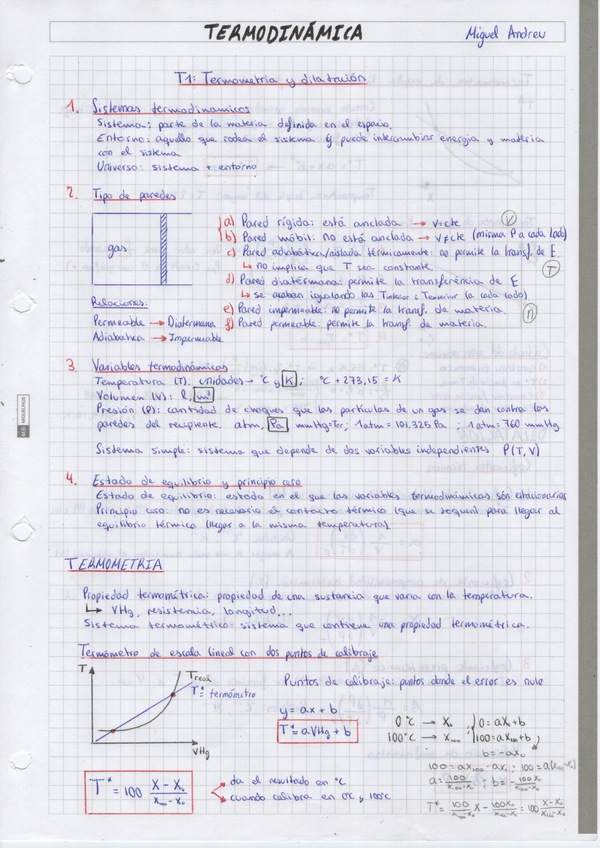 TERMODINÁMICA
Miguel Andreu
T1: Termometria y dilatación
1. Sistemas termodinamicos
Sistema: parte de la materia definida en el espacio.
Entorno: aquello que rodea el sistema y puede intercambiar energia y materia
con el sistema
Universo: sistema + entorno
2. Tipo de paredes
gas
a) Pared rígida: está anclada → V=cte (V)
b) Pared móbil: no está anclada → V≠cte (misma P a cada lado)
c) Pared adiabática/aislada térmicamente: no permite la transf. de E.
↳ no implica que T sea constante. (T)
d) Pared diatérmana: permite la transferéncia de E
↳ se acaban igualando las Tinterior i Texterior (a cada lado)
e) Pared impermeable: no permite la transf. de materia. (n)
f) Pared permeable: permite la transf. de materia.
Relaciones:
Permeable → Diatermana
Adiabatica → Impermeable
3. Variables termodinámicas
Temperatura (T): unidades → °C y K ; °C + 273,15 = K
Volumen (V): l, m³
Presión (P): cantidad de choques que las partículas de un gas se dan contra las
paredes del recipiente. atm, Pa mmHg=Torr; 1atm=101.325 Pa ; 1atm=760 mmHg
Sistema simple: sistema que depende de dos variables independientes P(T,V)
4. Estado de equilibrio y principio cero
Estado de equilibrio: estado en el que las variables termodinámicas són estacionarias
Principio cero: no es necesario el contacto térmico (que se toquen) para llegar al
equilibrio térmico (llegar a la misma temperatura).
TERMOMETRIA
Propiedad termométrica: propiedad de una sustancia que varia con la temperatura.
↳ VHg, resistencia, longitud...
Sistema termométrico: sistema que contiene una propiedad termométrica.
Termómetro de escala lineal con dos puntos de calibraje
T
Treal
T* termómetro
VHg
Puntos de calibraje: puntos donde el error es nulo
y = ax + b
T* = aVHg + b
0°C → X₀ 0 = aX₀ + b
100°C → X₁₀₀ 100 = aX₁₀₀ + b
b = -aX₀
100 = aX₁₀₀ - aX₀ ; 100 = a(X₁₀₀-X₀)
a = 100/(X₁₀₀-X₀) ; b = - 100X₀/(X₁₀₀-X₀)
T* = 100/(X₁₀₀-X₀) X - 100X₀/(X₁₀₀-X₀) = 100 (X-X₀)/(X₁₀₀-X₀)
T* = 100 (X - X₀)/(X₁₀₀ - X₀)
da el resultado en °C
cuando calibra en 0°C y 100°C